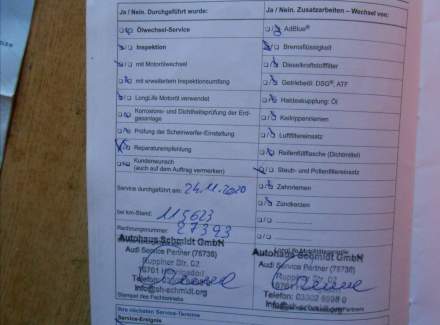 Ja / Nein. Durchgeführt wurde:
Ölwechsel-Service
Inspektion
mit Motorölwechsel
mit erweitertem Inspektionsumfang
LongLife Motoröl verwendet
Korrosions- und Dichtheitsprüfung der Erd-
gasanlage
Prüfung der Scheinwerfer-Einstellung
Reparaturempfehlung
Kundenwunsch
(auch auf dem Auftrag vermerken)
Service durchgeführt am: 24.11.2020
bei km-Stand: 115623
Rechnungsnummer: 27393
Autohaus Schmidt GmbH
Audi Service Partner (75736)
Ruppiner Str.
16761
Telefon:
info@sh-schmidt.org
Stempel des Fachbetriebs
Ja / Nein. Zusatzarbeiten – Wechsel von:
AdBlue®
Bremsflüssigkeit
Dieselkraftstofffilter
Getriebeöl: DSG®, ATF
Haldexkupplung: Öl
Keilrippenriemen
Luftfiltereinsatz
Reifenfüllflasche (Dichtmittel)
Staub- und Pollenfiltereinsatz
Zahnriemen
Zündkerzen
Autohaus Schmidt GmbH
Audi Service Partner (75736)
Ruppiner Str.
Telefon: 03302
info@sh-schmidt.org
Ihre nächsten Service-Termine
Service-Ereignis